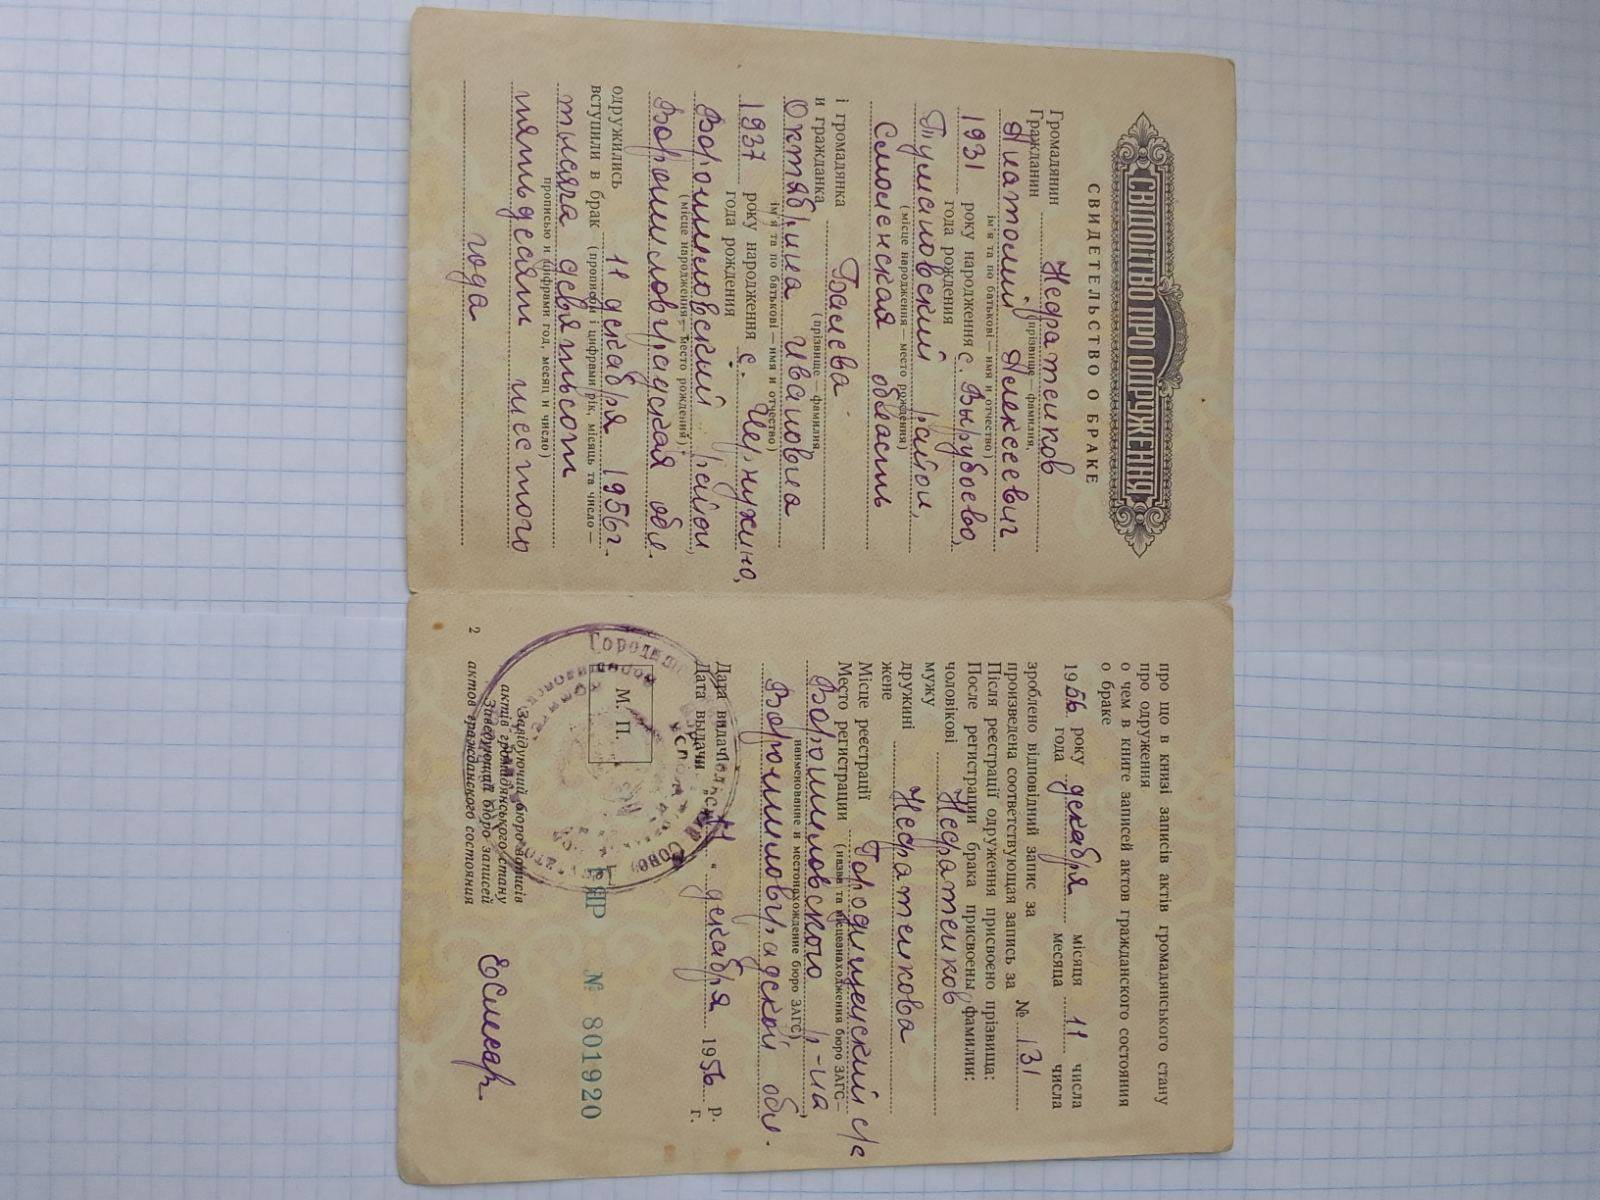 СВІДОЦТВО ПРО ОДРУЖЕННЯ
СВИДЕТЕЛЬСТВО О БРАКЕ
Громадянин
Гражданин
(прізвище — фамилия,
Анатолий Алексеевич
ім'я та по батькові — имя и отчество)
1931 року народження с. Вырубово,
года рождения
Тумановский район,
(місце народження — место рождения)
Смоленская область
і громадянка
и гражданка
(прізвище — фамилия,
Октябрина Ивановна
ім'я та по батькові — имя и отчество)
1937 року народження с. Чернухино,
года рождения
Ворошиловский район,
(місце народження — место рождения)
Ворошиловградская обл.
одружились 11 декабря 1956г.
вступили в брак (прописом і цифрами рік, місяць та число —
тысяча девятьсот
прописью и цифрами год, месяц и число)
пятьдесят шестого
года
про що в книзі записів актів громадянського стану
про одруження
о чем в книге записей актов гражданского состояния
о браке
1956 року декабря місяця 11 числа
года месяца числа
зроблено відповідний запис за
произведена соответствующая запись за № 31
Після реєстрації одруження присвоєно прізвища:
После регистрации брака присвоены фамилии:
чоловікові
мужу
дружині
жене
Місце реєстрації Городищенский с/с
Место регистрации (назва та місцезнаходження бюро ЗАГС —
Ворошиловского р-на
наименование и местонахождение бюро ЗАГС)
Ворошиловградской обл.
Дата видачі
Дата выдачи „11“ декабря 1956 р.
г.
М. П.
ЯР № 801920
Завідуючий бюро записів
актів громадянського стану
Заведующий бюро записей
актов гражданского состояния
2